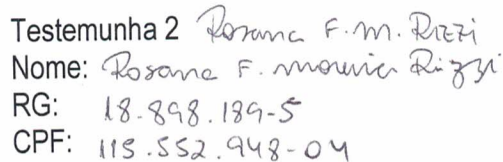 Testemunha 2 Rosana F. M. Rizzi
Nome: Rosana F. Moreira Rizzi
RG: 18.898.189-5
CPF: 115.552.948-04